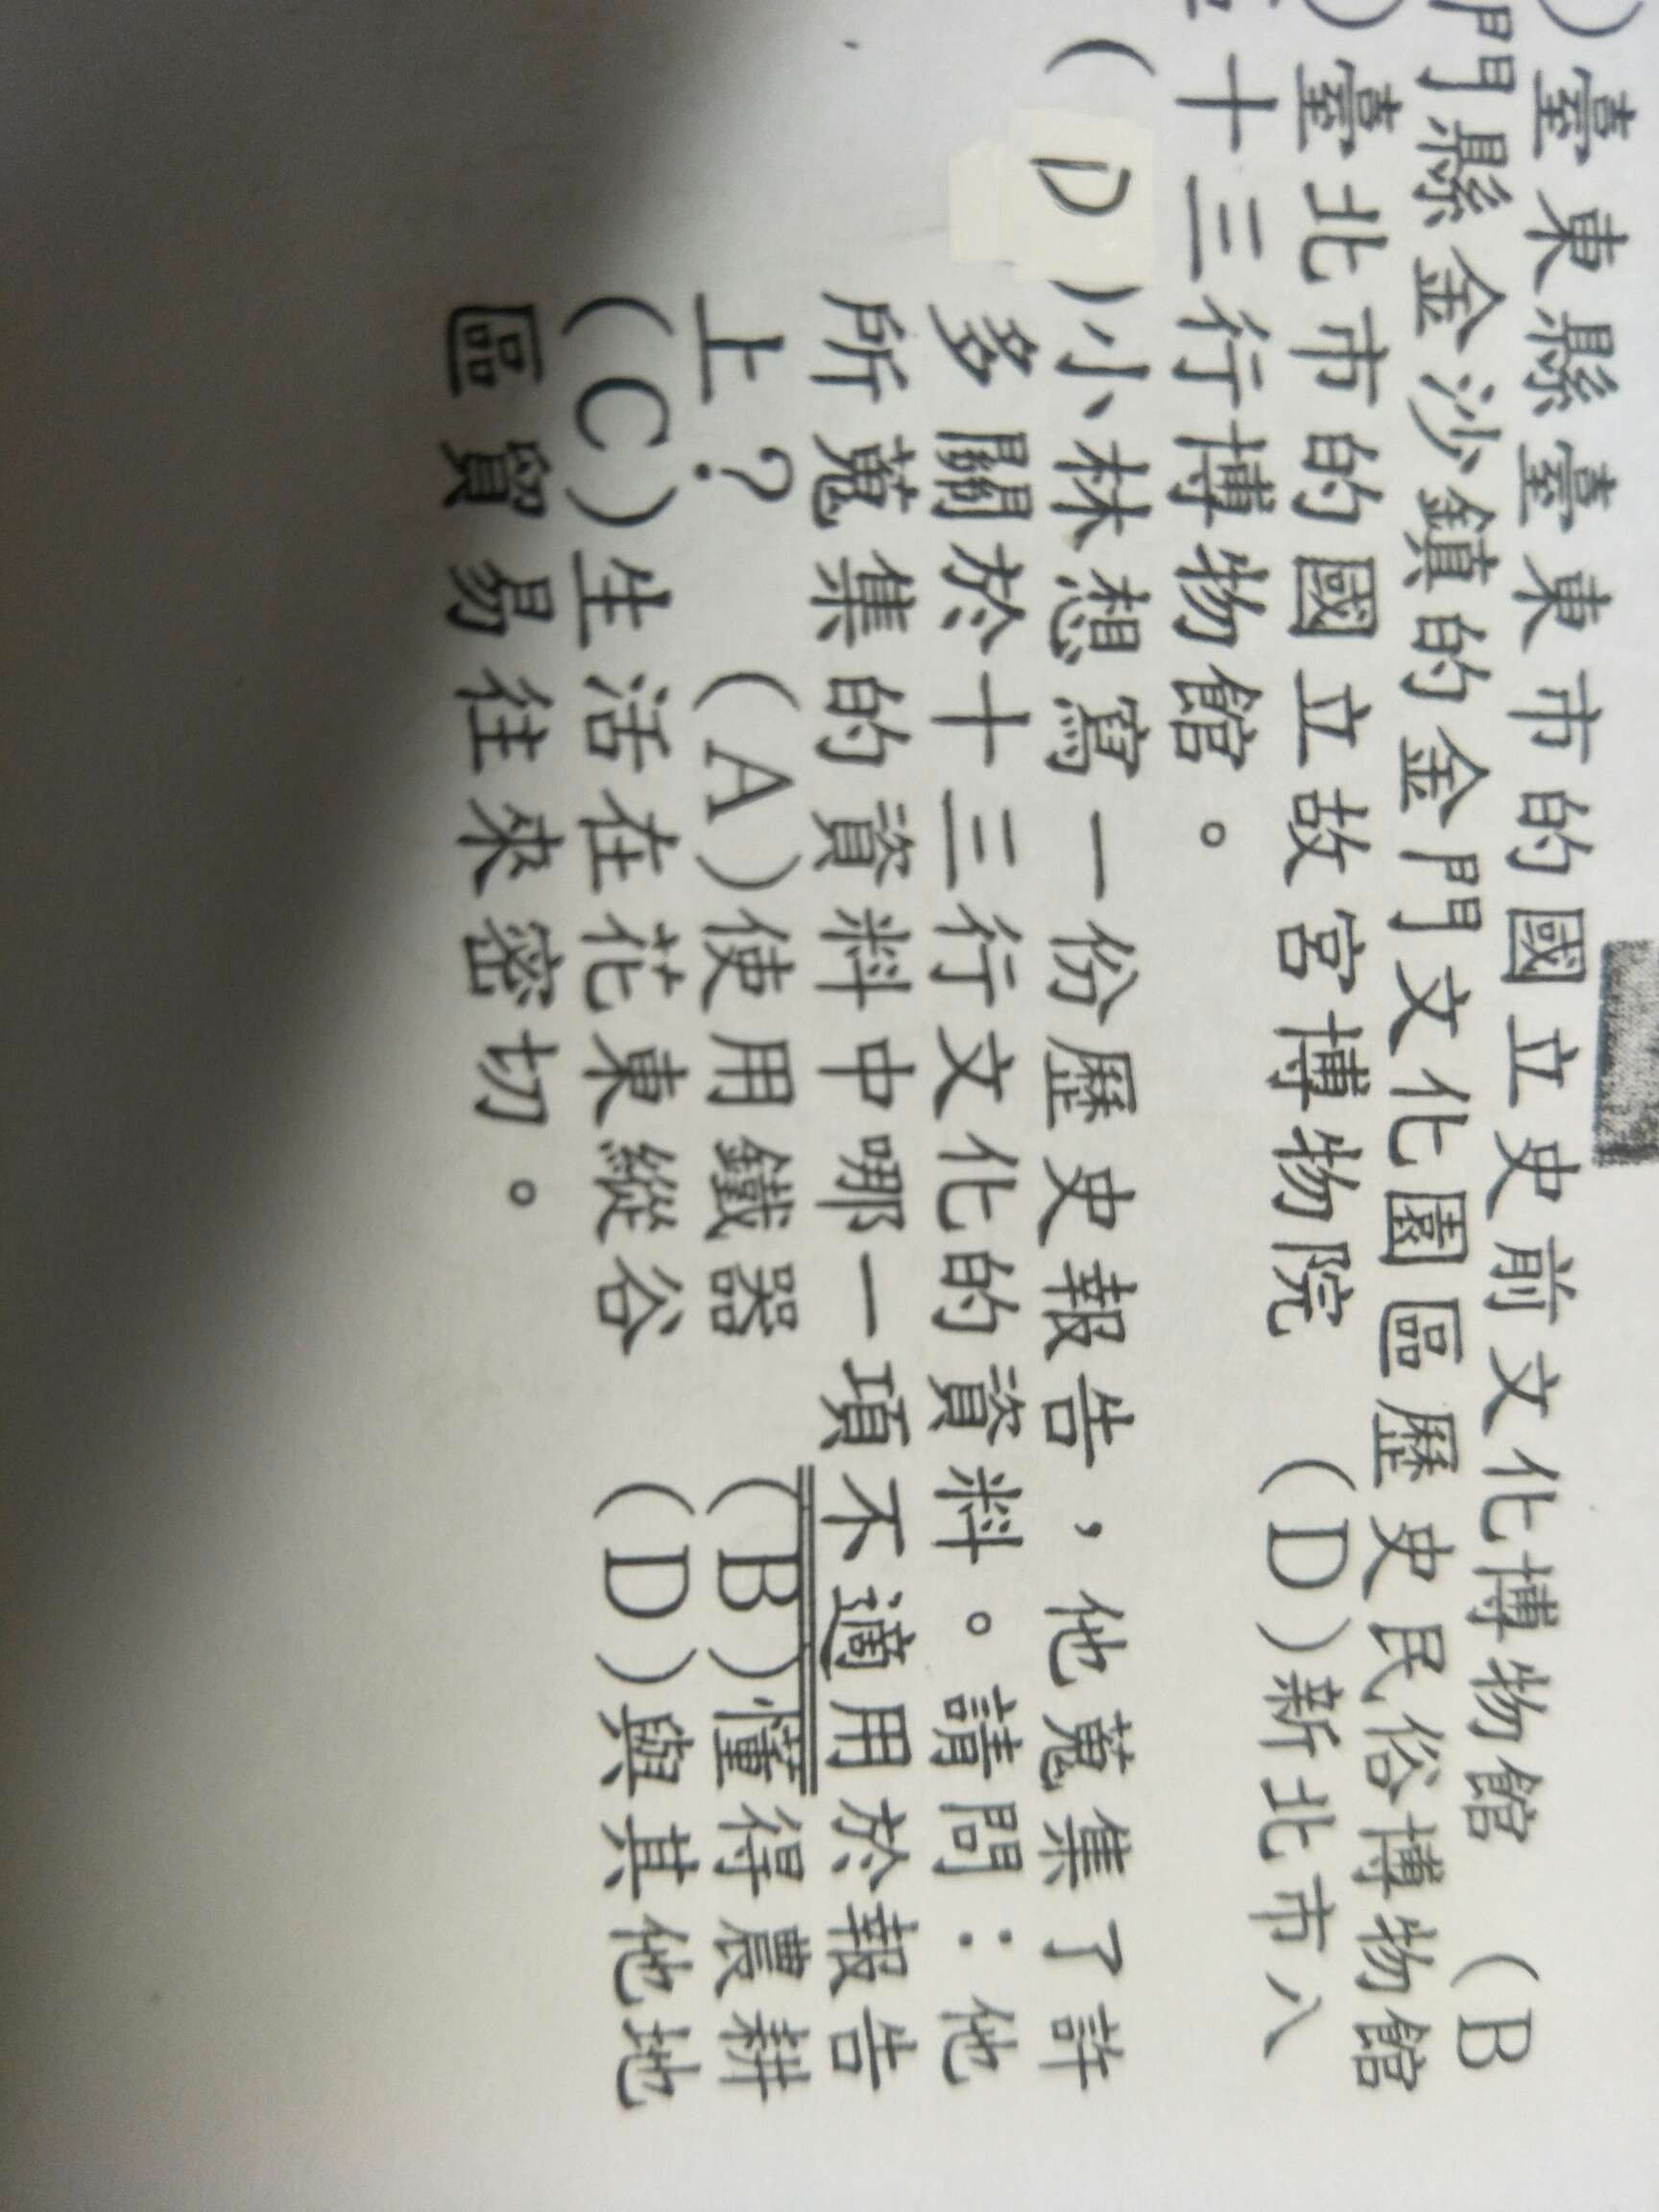 )臺東縣臺東市的國立史前文化博物館 (B
門縣金沙鎮的金門文化園區歷史民俗博物館
)臺北市的國立故宮博物院 (D)新北市八
十三行博物館。
( D )小林想寫一份歷史報告，他蒐集了許
多關於十三行文化的資料。請問：他
所蒐集的資料中哪一項不適用於報告
上？ (A)使用鐵器 (B)懂得農耕
(C)生活在花東縱谷 (D)與其他地
區貿易往來密切。